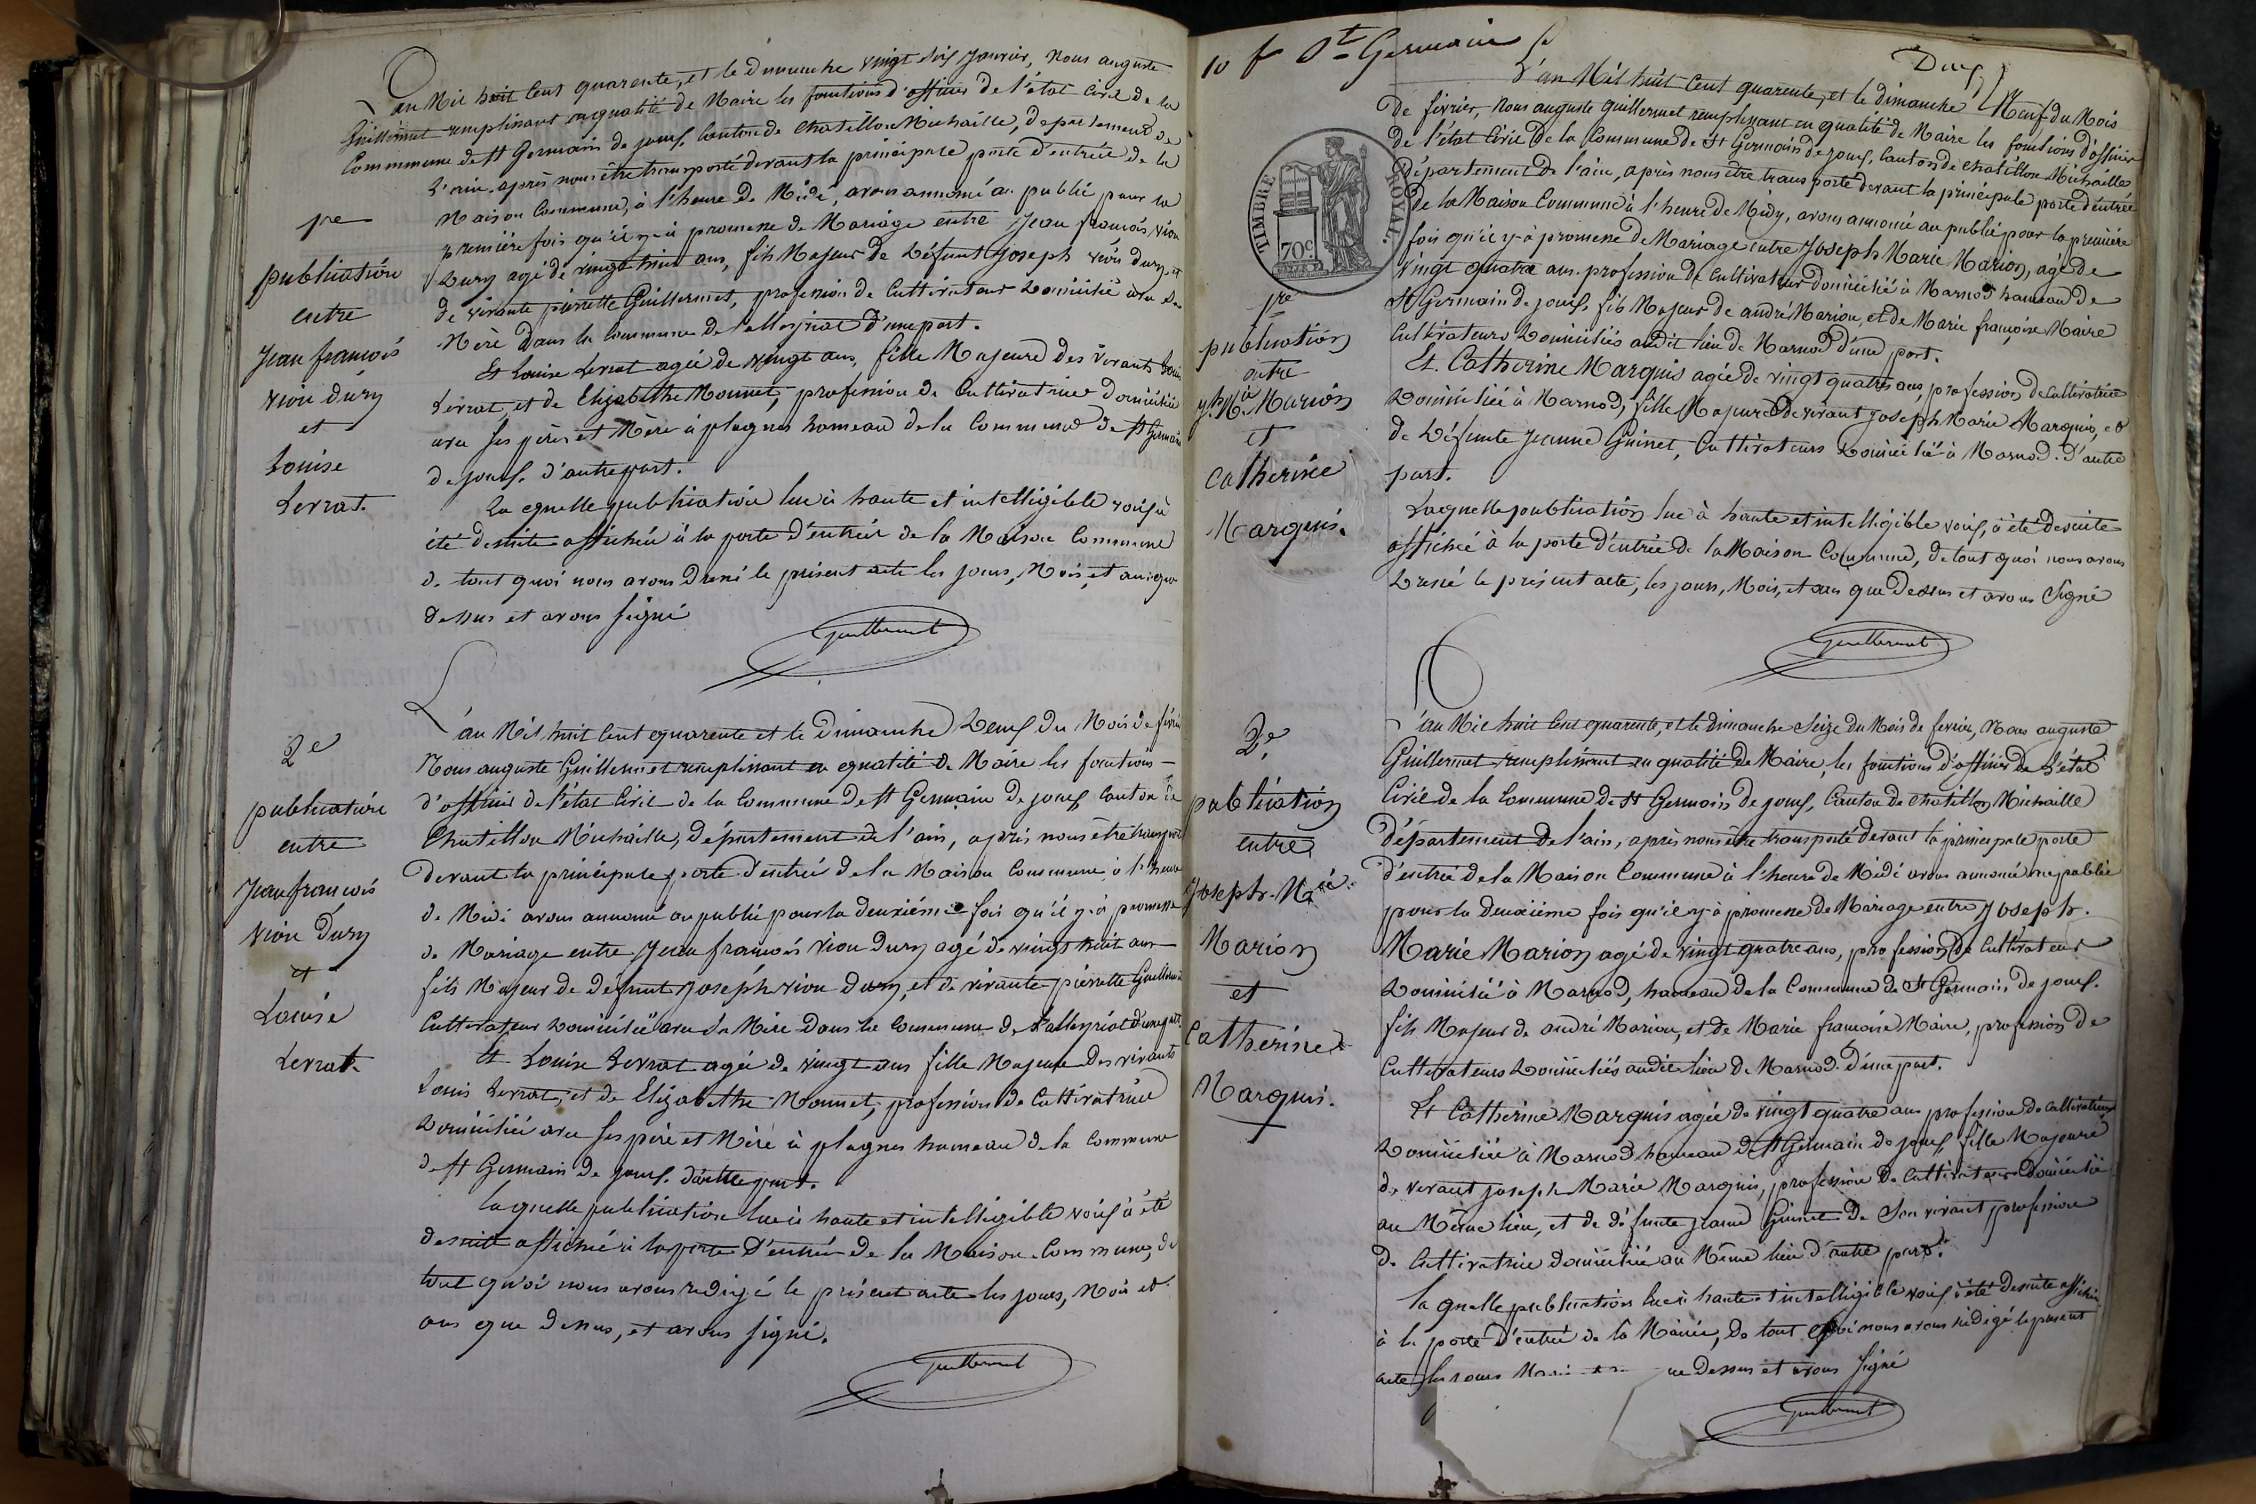 L'an Mil huit Cent quarante, et le dimanche vingt six Janvier, Nous auguste
Guillermet remplissant en qualité de Maire les fonctions d'officier de l'état Civil de la
Commune de St Germain de joux, Canton de Chatillon Michaille, département de
l'ain, après nous être transporté devant la principale porte d'entrée de la
Maison Commune, à l'heure de Midi, avons annoncé au publié pour la
première fois qu'il y a promesse de Mariage entre Jean françois vion
Dury agé de vingt huit ans, fils Majeur de Défunt Joseph vion dury et
de vivante pierrette Guillermet, profession de Cultivateur Domicilié avec sa
Mère Dans la Commune de d'une part.
Et Louise Levrat agée de vingt ans, fille Majeure des vivants Louis
Levrat, et de Elizabethe Monnet, profession de Cultivatrice domiciliée
avec ses père et Mère à plagnes hameau de la Commune de St Germain
de joux. d'autre part.
Laquelle publication lue à haute et intelligible voix, à
été desuite affichée à la porte d'entrée de la Maison Commune
de tout quoi nous avons Dressé le présent acte les jours, Mois, et an que
dessus et avons signé
Guillermet
1re
publication
entre
Jean françois
vion dury
et
Louise
Levrat.
L'an Mil huit Cent quarante et le Dimanche Deux du Mois de février
Nous auguste Guillermet remplissant en qualité de Maire les fonctions
d'officier de l'état Civil de la Commune de St Germain de joux Canton de
Chatillon Michaille, département de l'ain, après nous être transporté
devant la principale porte d'entrée de la Maison Commune à l'heure
de Midi avons annoncé au publié pour la deuxiéme fois qu'il y à promesse
de Mariage entre Jean françois vion dury agé de vingt huit ans
fils Majeur de défunt Joseph vion dury, et de vivante pierrette Guillermet
Cultivateur Domicilié avec sa Mère Dans la Commune de d'une part.
Et Louise Levrat agée de vingt ans fille Majeure des vivants
Louis Levrat, et de Elizabethe Monnet, profession de Cultivatrice
Domiciliée avec ses père et Mère à plagnes hameau de la Commune
de St Germain de joux. d'autre part.
laquelle publication lue à haute et intelligible voix à été
desuite affichée à la porte D'entrée de la Maison Commune, de
tout quoi nous avons redigé le présent acte les jours, Mois et
ans que dessus, et avons signé.
Guillermet
2e
publication
entre
Jean françois
vion Dury
et
Louise
Levrat
10 f St Germain
Deux
L'an Mil huit Cent quarante, et le dimanche Neuf du Mois
de février, Nous auguste Guillermet remplissant en qualité de Maire les fonctions d'officier
de l'état Civil de la Commune de St Germain de joux, Canton de Chatillon Michaille
département de l'ain, après nous être transporté devant la principale porte d'entrée
de la Maison Commune à l'heure de Midy, avons annoncé au publié pour la première
fois qu'il y à promesse de Mariage entre Joseph Marie Marion, agé de
vingt quatre ans. profession de Cultivateur domicilié à Marnod hameau de
St Germain de joux, fils Majeur de andré Marion, et de Marie françoise Maire
Cultivateurs Domiciliés audit lieu de Marnod d'une part.
Et. Catherine Marquis agée de vingt quatre ans, profession de Cultivatrice
Domiciliée à Marnod, fille Majeure de vivant Joseph Marie Marquis, et
de Défunte Jeanne Guinet, Cultivateurs Domicilié à Marnod. d'autre
part.
Laquelle publication lue à haute et intelligible voix, à été desuite
affichée à la porte d'entrée de la Maison Commune, de tout quoi nous avons
Dressé le présent acte, les jours, Mois, et an que Dessus et avons Signé
Guillermet
TIMBRE ROYAL.
70c
1re
publication
entre
Jh Mie Marion
et
Catherine
Marquis.
L'an Mil huit Cent quarante, et le dimanche Seize du Mois de fevrier, Nous auguste
Guillermet remplissant en qualité de Maire, les fonctions d'officier de l'état
Civil de la Commune de St Germain de joux, Canton de Chatillon Michaille
département de l'ain, après nous être transporté devant la principale porte
d'entrée de la Maison Commune à l'heure de Midi avons annoncé au publié
pour la deuxiéme fois qu'il y à promesse de Mariage entre Joseph.
Marie Marion agé de vingt quatre ans, profession de Cultivateur
Domicilié à Marnod, hameau de la Commune de St Germain de joux.
fils Majeur de andré Marion, et de Marie françoise Maire, profession de
Cultivateurs Domiciliés audit lieu de Marnod. d'une part.
Et Catherine Marquis agée de vingt quatre ans profession de Cultivatrice
Domiciliée à Marnod hameau de St Germain de joux, fille Majeure
de vivant Joseph Marie Marquis, profession de Cultivateur domicilié
au Même lieu, et de défunte Jeanne Guinet de Son vivant profession
de Cultivatrice domiciliée au Même lieu d'autre part.
laquelle publication lue à haute et intelligible voix, à été desuite affichée
à la porte d'entrée de la Mairie, de tout quoi nous avons rédigé le présent
acte les jours Mois que Dessus et avons Signé
Guillermet
2e
publication
entre
Joseph. Mie.
Marion
et
Catherine
Marquis.